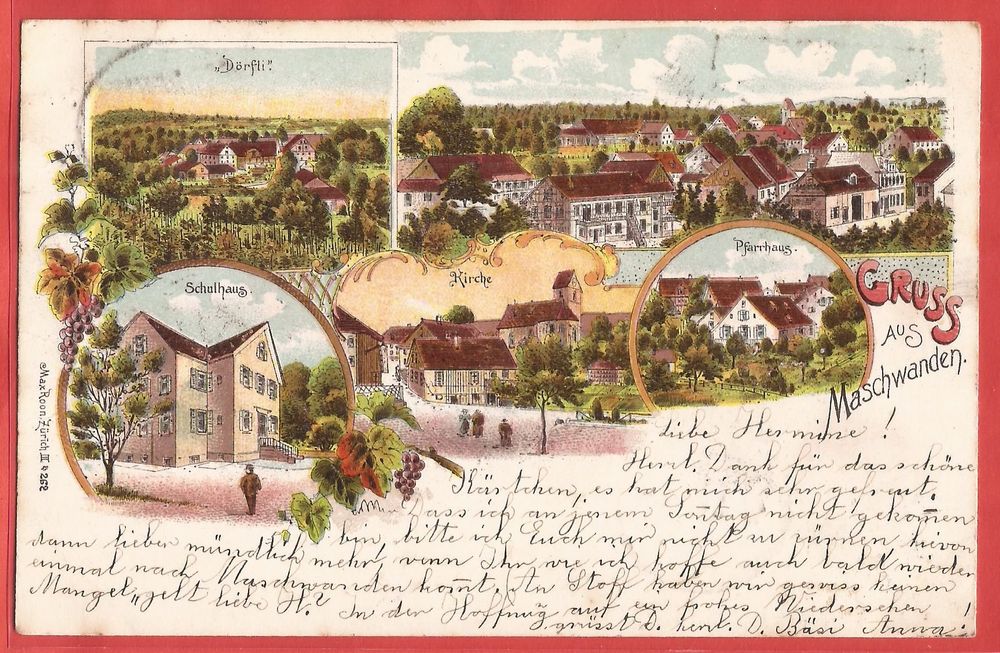 „Dörfli“.
Kirche
Pfarrhaus.
Schulhaus.
GRUSS
AUS
Maschwanden.
Max Roon, Zürich III 4262
Liebe Hermine!
Herzl. Dank für das schöne
Kärtchen, es hat mich sehr gefreut.
Dass ich an jenem Sonntag nicht gekommen
bin, bitte ich Euch mir nicht zu zürnen hievon
dann lieber mündlich mehr, wenn Ihr wie ich hoffe auch bald wieder
einmal nach Maschwanden kommt. An Stoff haben wir gewiss keinen
Mangel, gelt liebe H.? In der Hoffnung auf ein frohes Wiedersehen
grüsst D. herzl. D. Bäsi Anna!